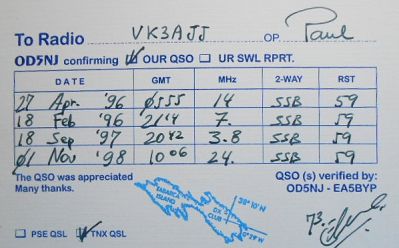 To Radio VK3AJJ OP. Paul
OD5NJ confirming OUR QSO UR SWL RPRT.
DATE GMT MHz 2-WAY RST
27 Apr. '96 0555 14 SSB 59
18 Feb '96 2114 7. SSB 59
18 Sep '97 2042 3.8 SSB 59
01 Nov '98 1006 24. SSB 59
The QSO was appreciated QSO (s) verified by:
Many thanks. OD5NJ - EA5BYP
TABARCA
ISLAND
DX
CLUB
38º 10' N
0º 29' W
73.
PSE QSL TNX QSL